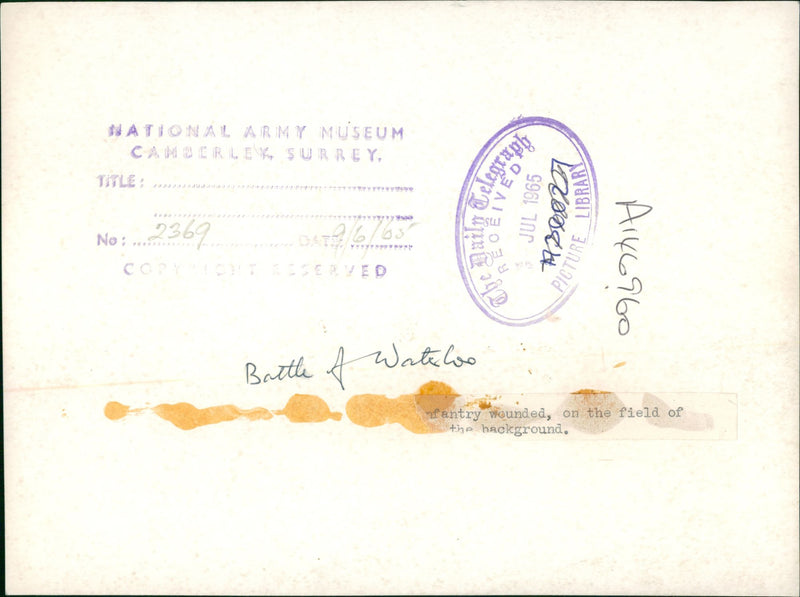 NATIONAL ARMY MUSEUM
CAMBERLEY, SURREY.
TITLE:
No: 2369 DATE 9/6/65
COPYRIGHT RESERVED
The Daily Telegraph
RECEIVED
JUL 1965
PICTURE LIBRARY
A146960
Battle of Waterloo
nfantry wounded, on the field of
the background.